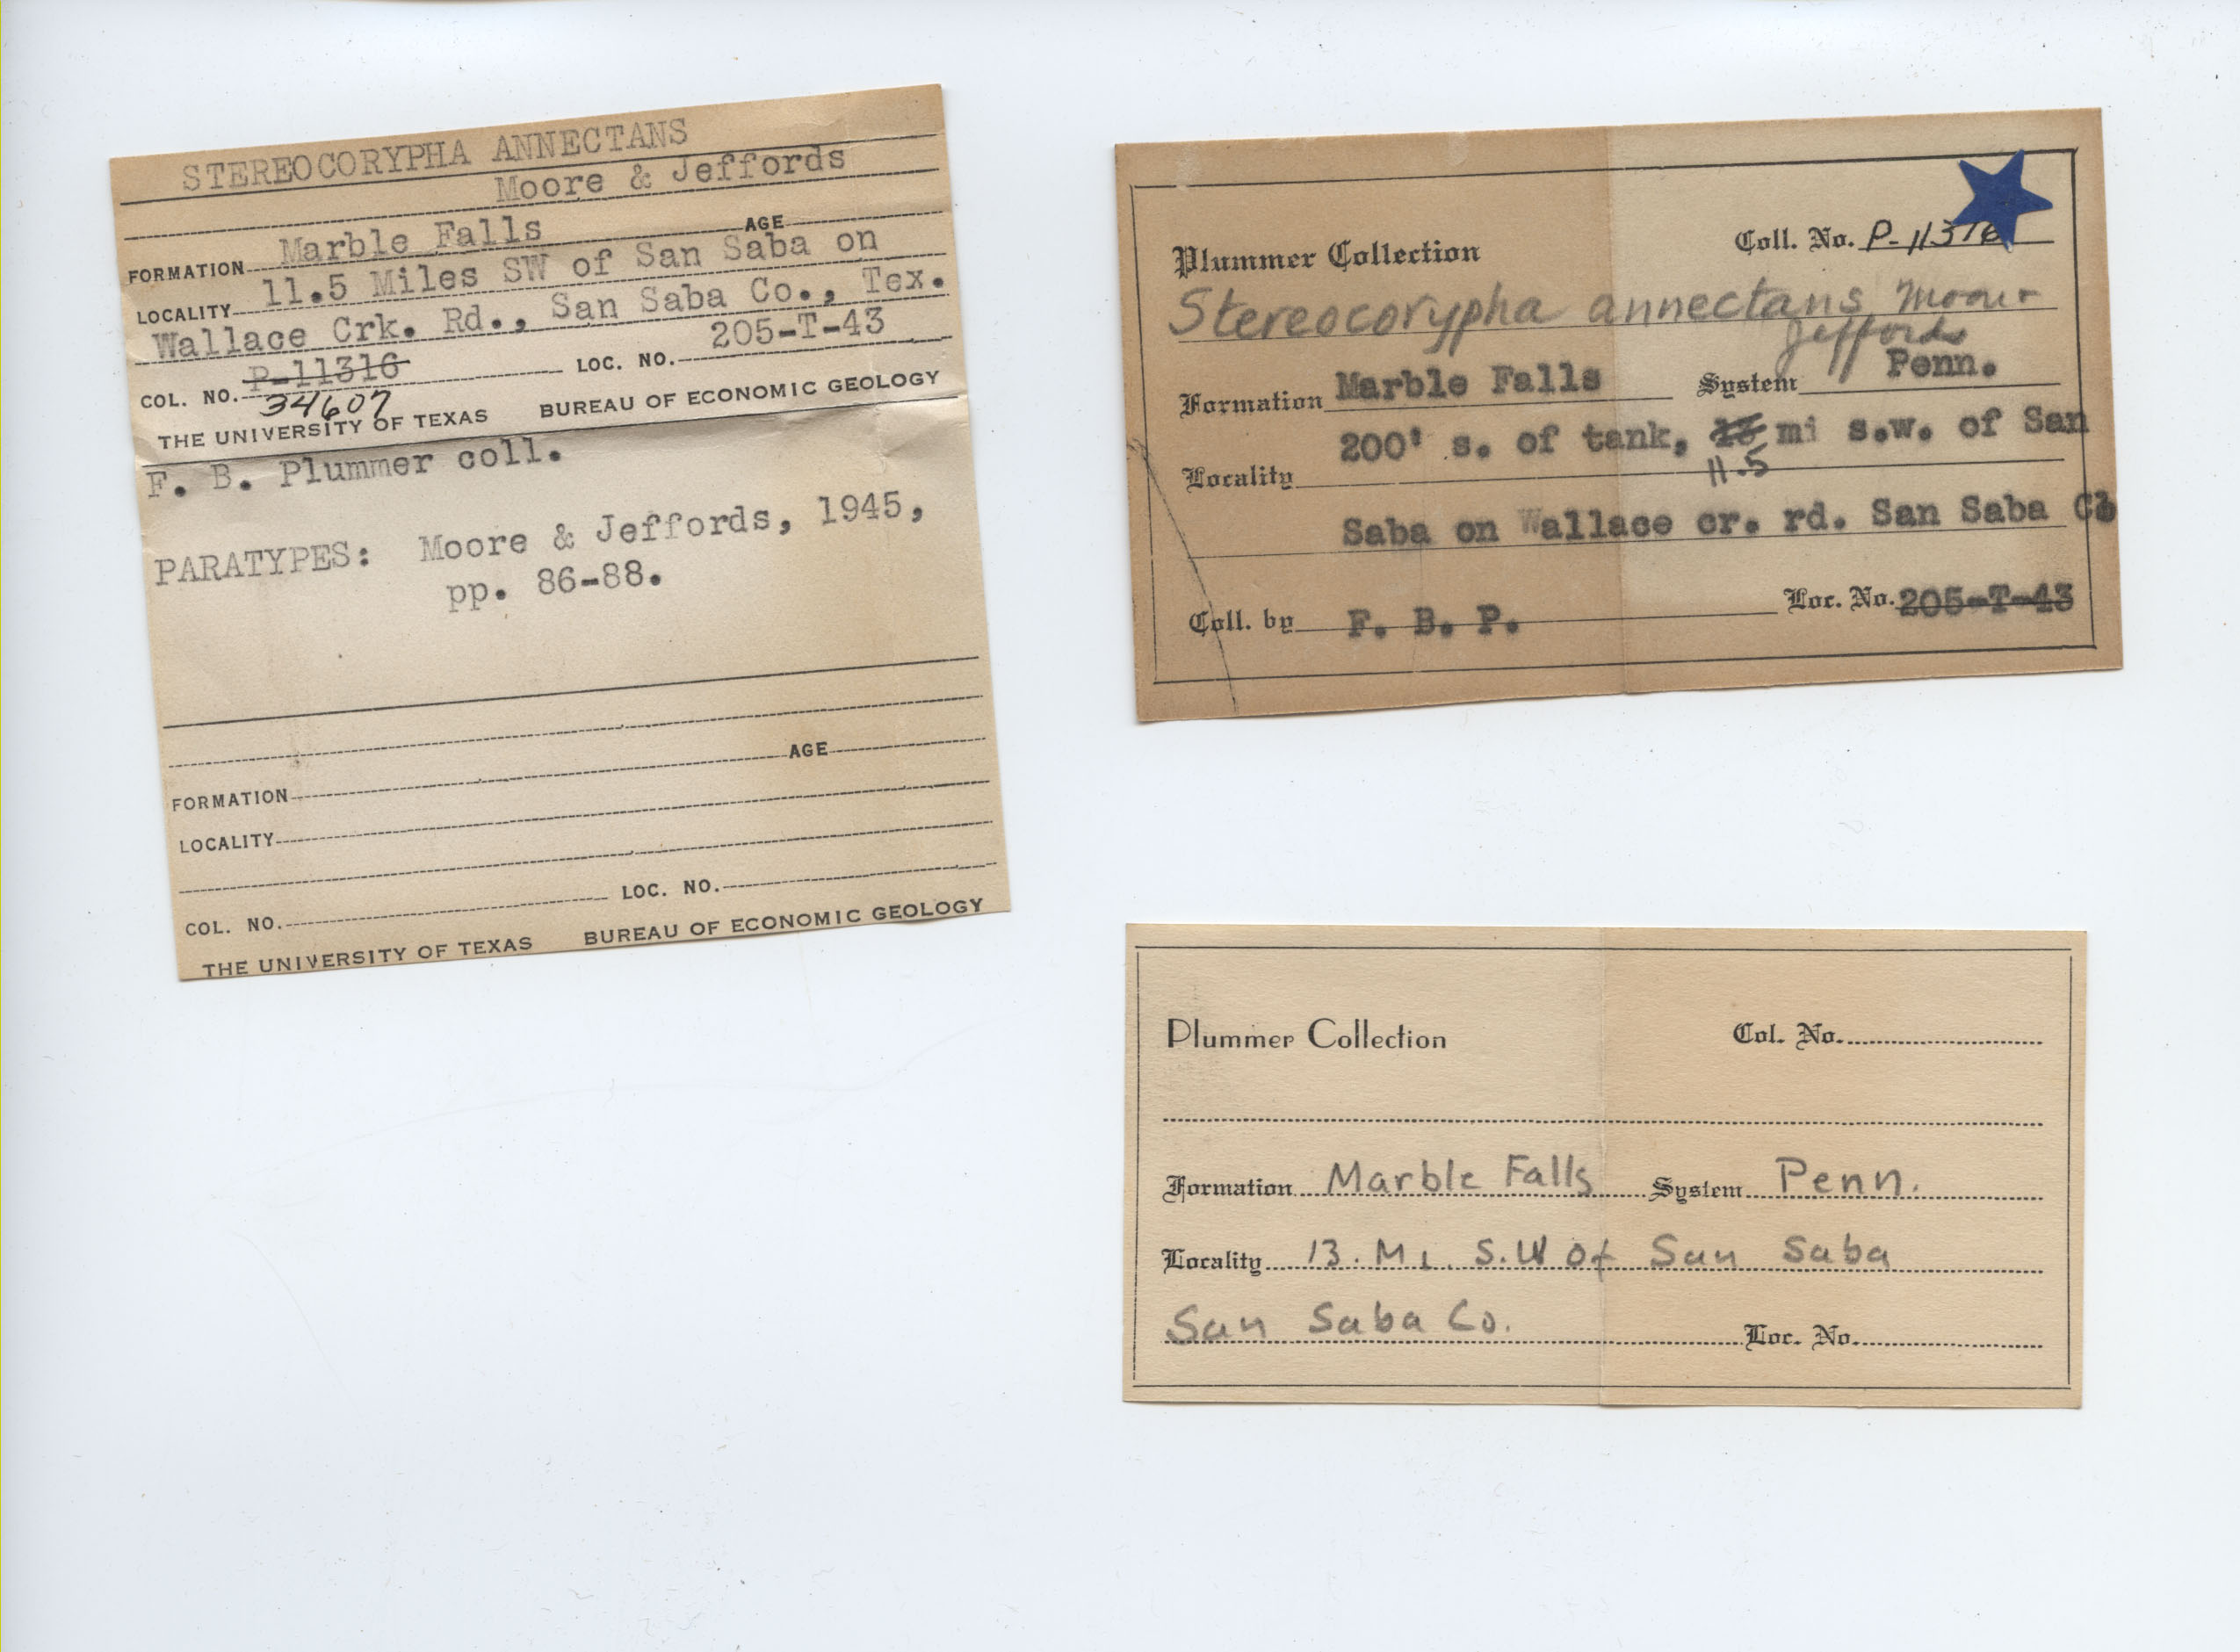 STEREOCORYPHA ANNECTANS
Moore & Jeffords
AGE
FORMATION Marble Falls
LOCALITY 11.5 Miles SW of San Saba on
Wallace Crk. Rd., San Saba Co., Tex.
COL. NO. P-11316 LOC. NO. 205-T-43
34607
THE UNIVERSITY OF TEXAS BUREAU OF ECONOMIC GEOLOGY
F. B. Plummer coll.
PARATYPES: Moore & Jeffords, 1945,
pp. 86-88.
AGE
FORMATION
LOCALITY
COL. NO. LOC. NO.
THE UNIVERSITY OF TEXAS BUREAU OF ECONOMIC GEOLOGY
Plummer Collection Coll. No. P-11316
Stereocorypha annectans Moore
Jeffords
Formation Marble Falls System Penn.
Locality 200' s. of tank, 13 mi s.w. of San
11.5
Saba on Wallace cr. rd. San Saba Co
Coll. by F. B. P. Loc. No. 205-T-43
Plummer Collection Col. No.
Formation Marble Falls System Penn.
Locality 13. Mi. S.W of San Saba
San Saba Co. Loc. No.